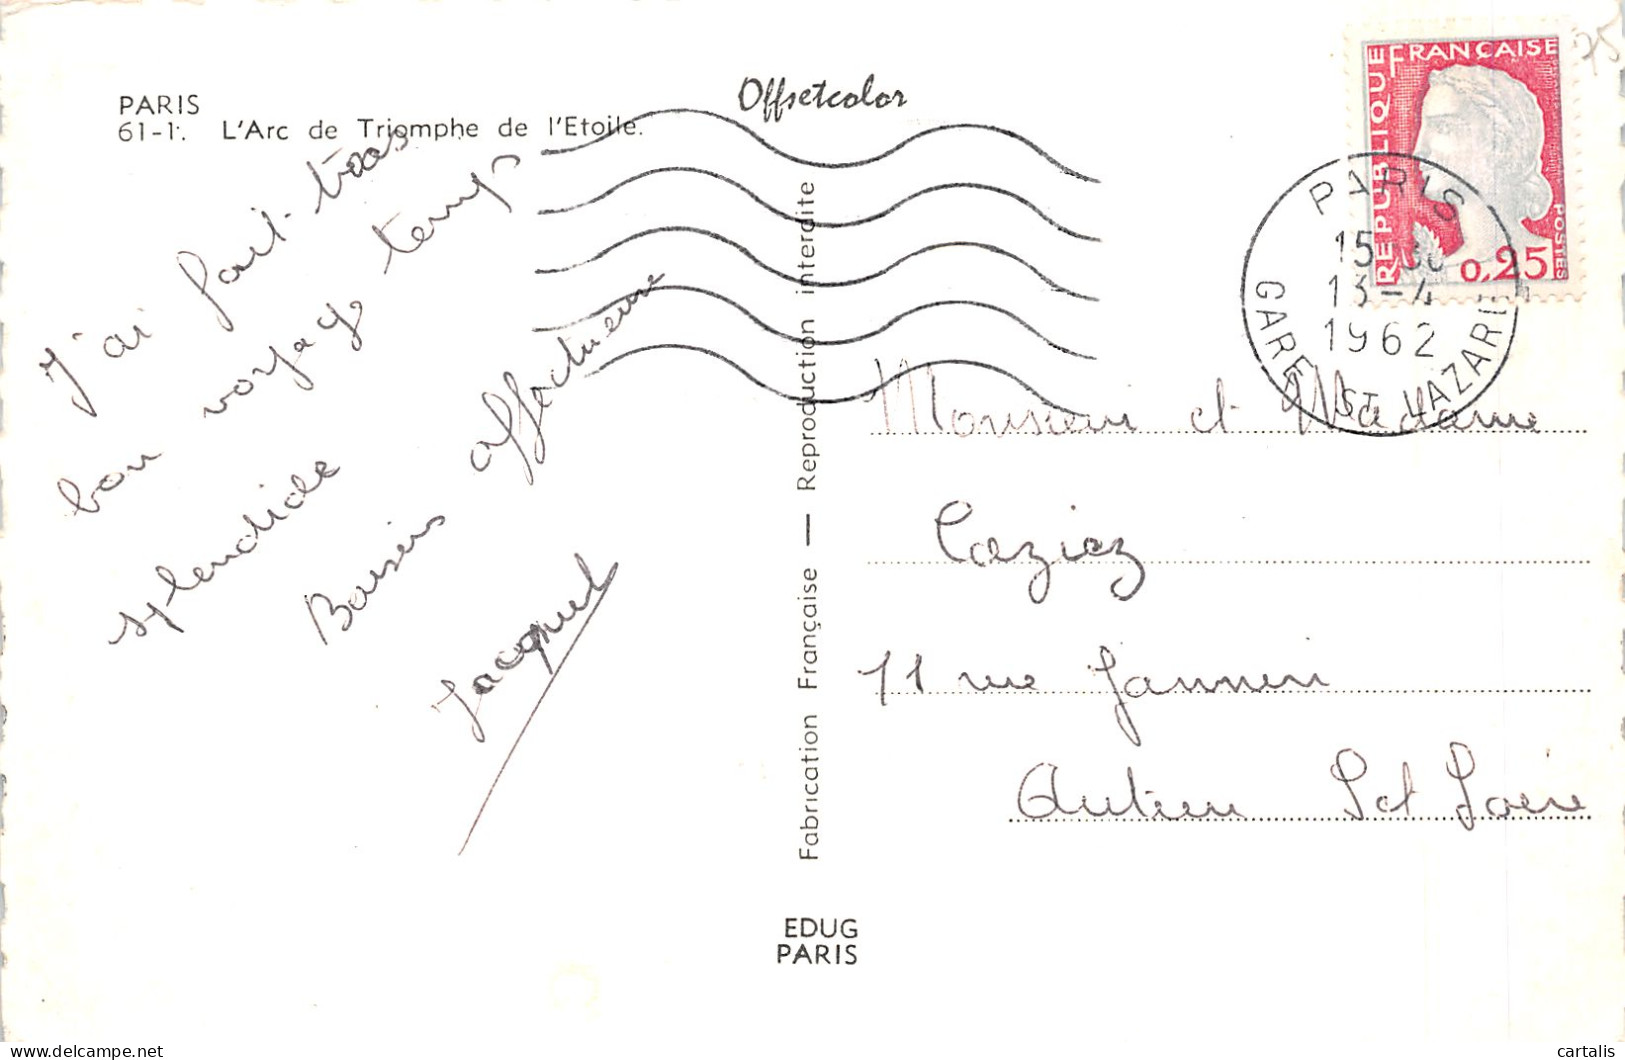 PARIS
61-1. L'Arc de Triomphe de l'Etoile.
Offsetcolor
J'ai fait très
bon voyage temps
splendide
Baisers affectueux
Jacquel
Fabrication Française — Reproduction interdite
EDUG
PARIS
RÉPUBLIQUE FRANÇAISE
POSTES
0,25
75
PARIS
15 30
13-4
1962
GARE ST LAZARE
Monsieur et Madame
Caziez
11 rue Jannin
Autun S et Loire
cartalis